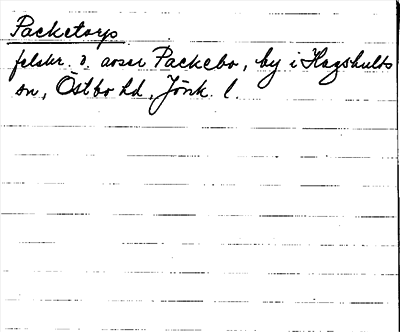 Packetorp
felskr. o. avser Packebo, by i Hagshults
sn, Östbo hd, Jönk. l.